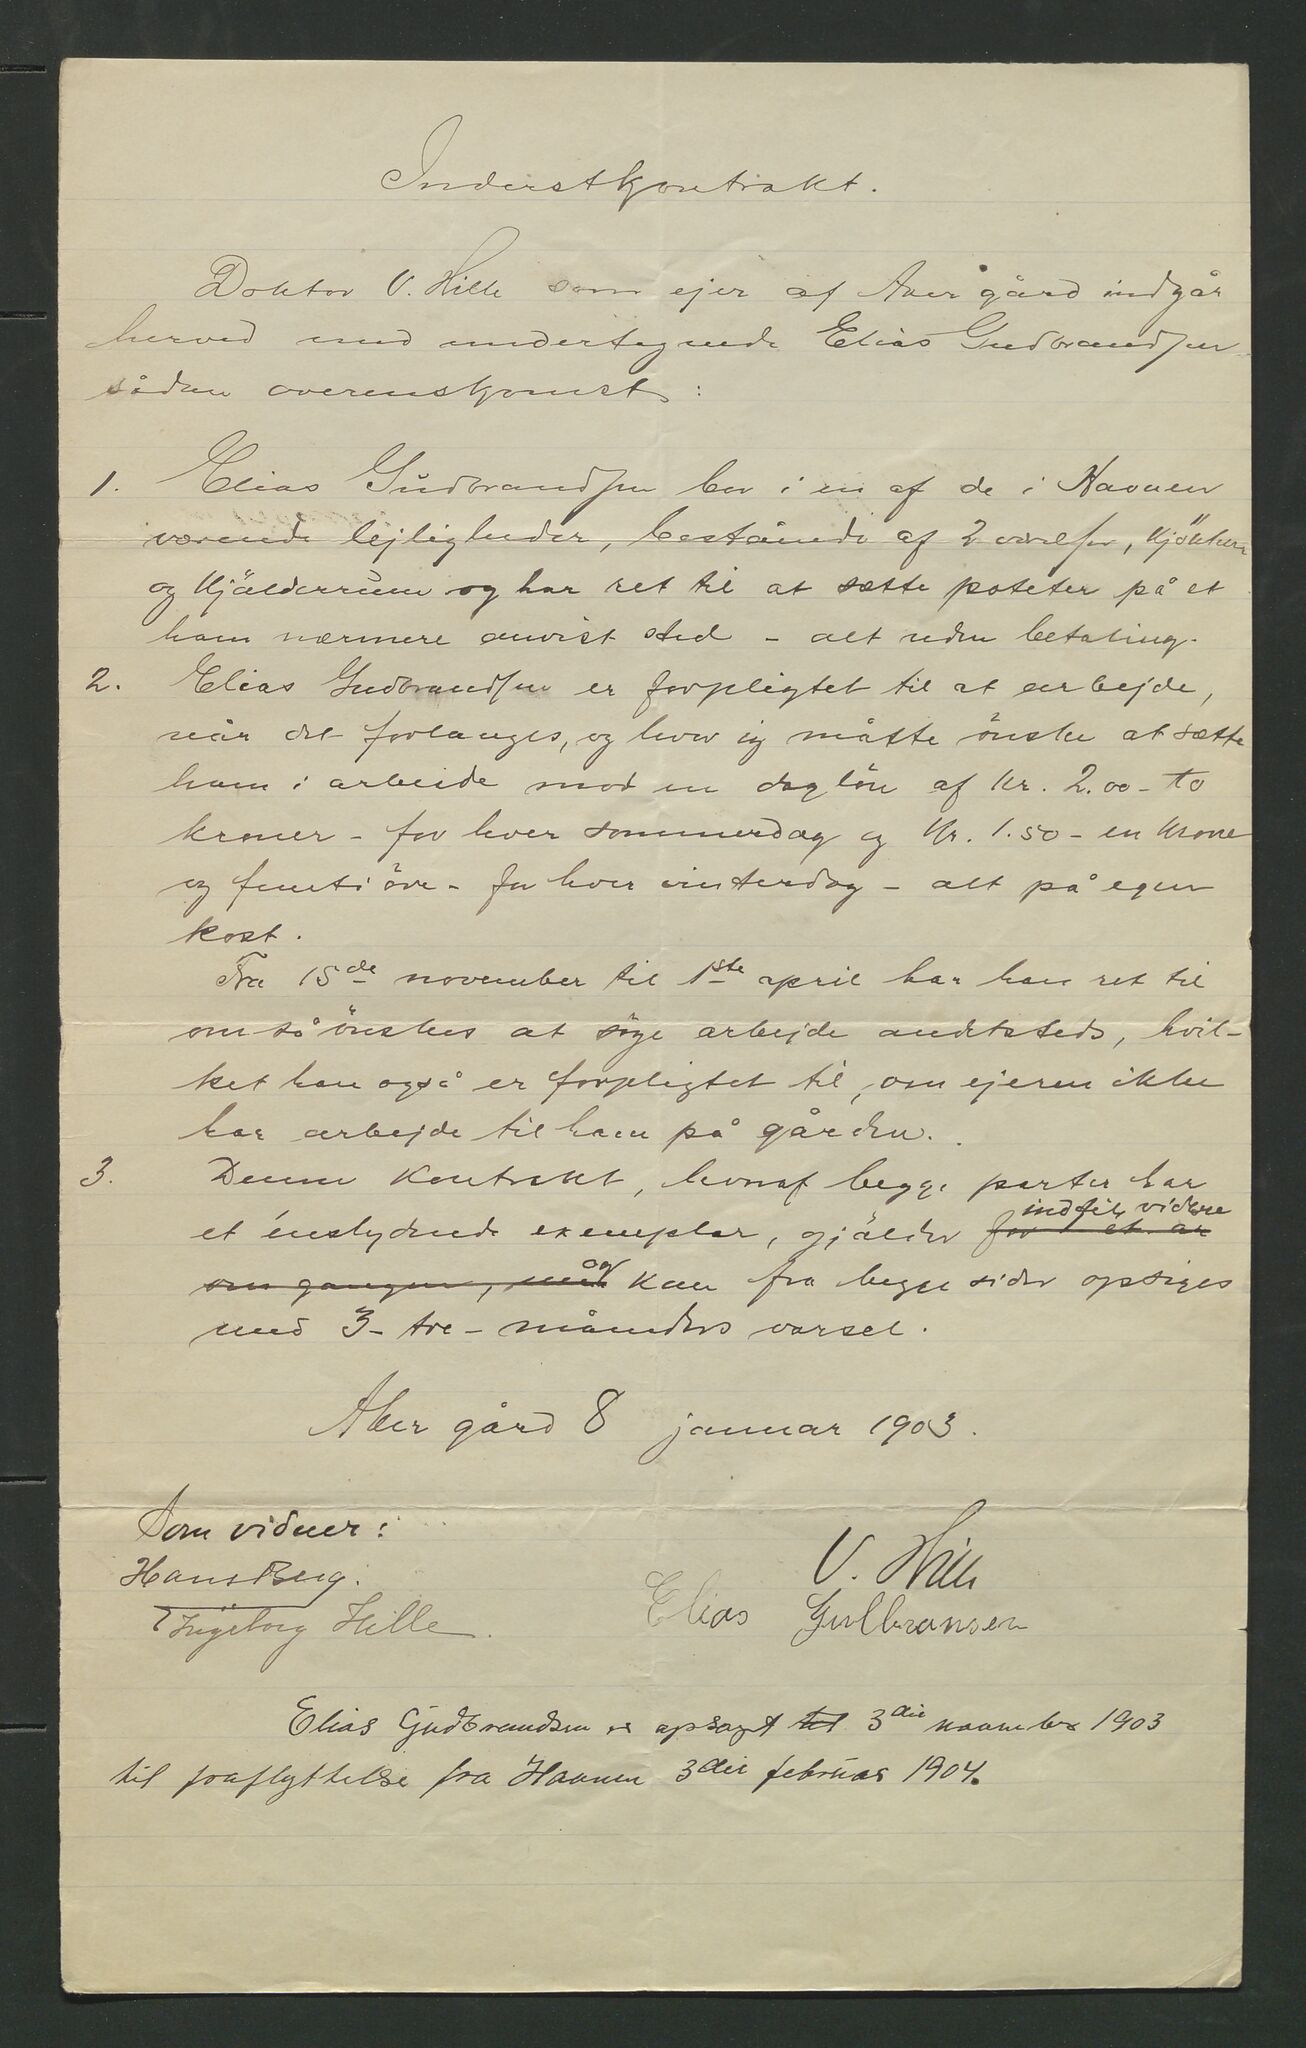 Inderstkontrakt.
Doktor V. Hille som ejer af Aker gård indgår
herved med undertegnede Elias Gudbrandsen
sådan overenskomst:
1. Elias Gudbrandsen bor i en af de i Havnen
værende lejligheder, bestående af 2 værelser, kjökken
og kjälderrum og har ret til at sætte poteter på et
ham nærmere anvist sted - alt uden betaling.
2. Elias Gudbrandsen er forpligtet til at arbejde,
når det forlanges, og hvor jeg måtte önske at sætte
ham i arbeide mod en daglön af Kr. 2.00 - to
kroner - for hver sommerdag og Kr. 1.50 - en krone
og femti öre - for hver vinterdag - alt på egen
kost.
Fra 15de november til 1ste april har han ret til
om så önskes at söge arbejde andetsteds, hvil-
ket han også er forpligtet til, om ejeren ikke
har arbejde til ham på gården.
3. Denne kontrakt, hvoraf begge parter har
indtil videre
et énslydende exemplar, gjälder for et år
og
om gangen, med kan fra begge sider opsiges
med 3 - tre - måneders varsel.
Aker gård 8 januar 1903.
Som vidner:
Hans Berg.
Ingeborg Hille.
V. Hille
Elias Gulbransen
Elias Gudbrandsen er opsagt til 3die november 1903
til fraflyttelse fra Havnen 3die februar 1904.